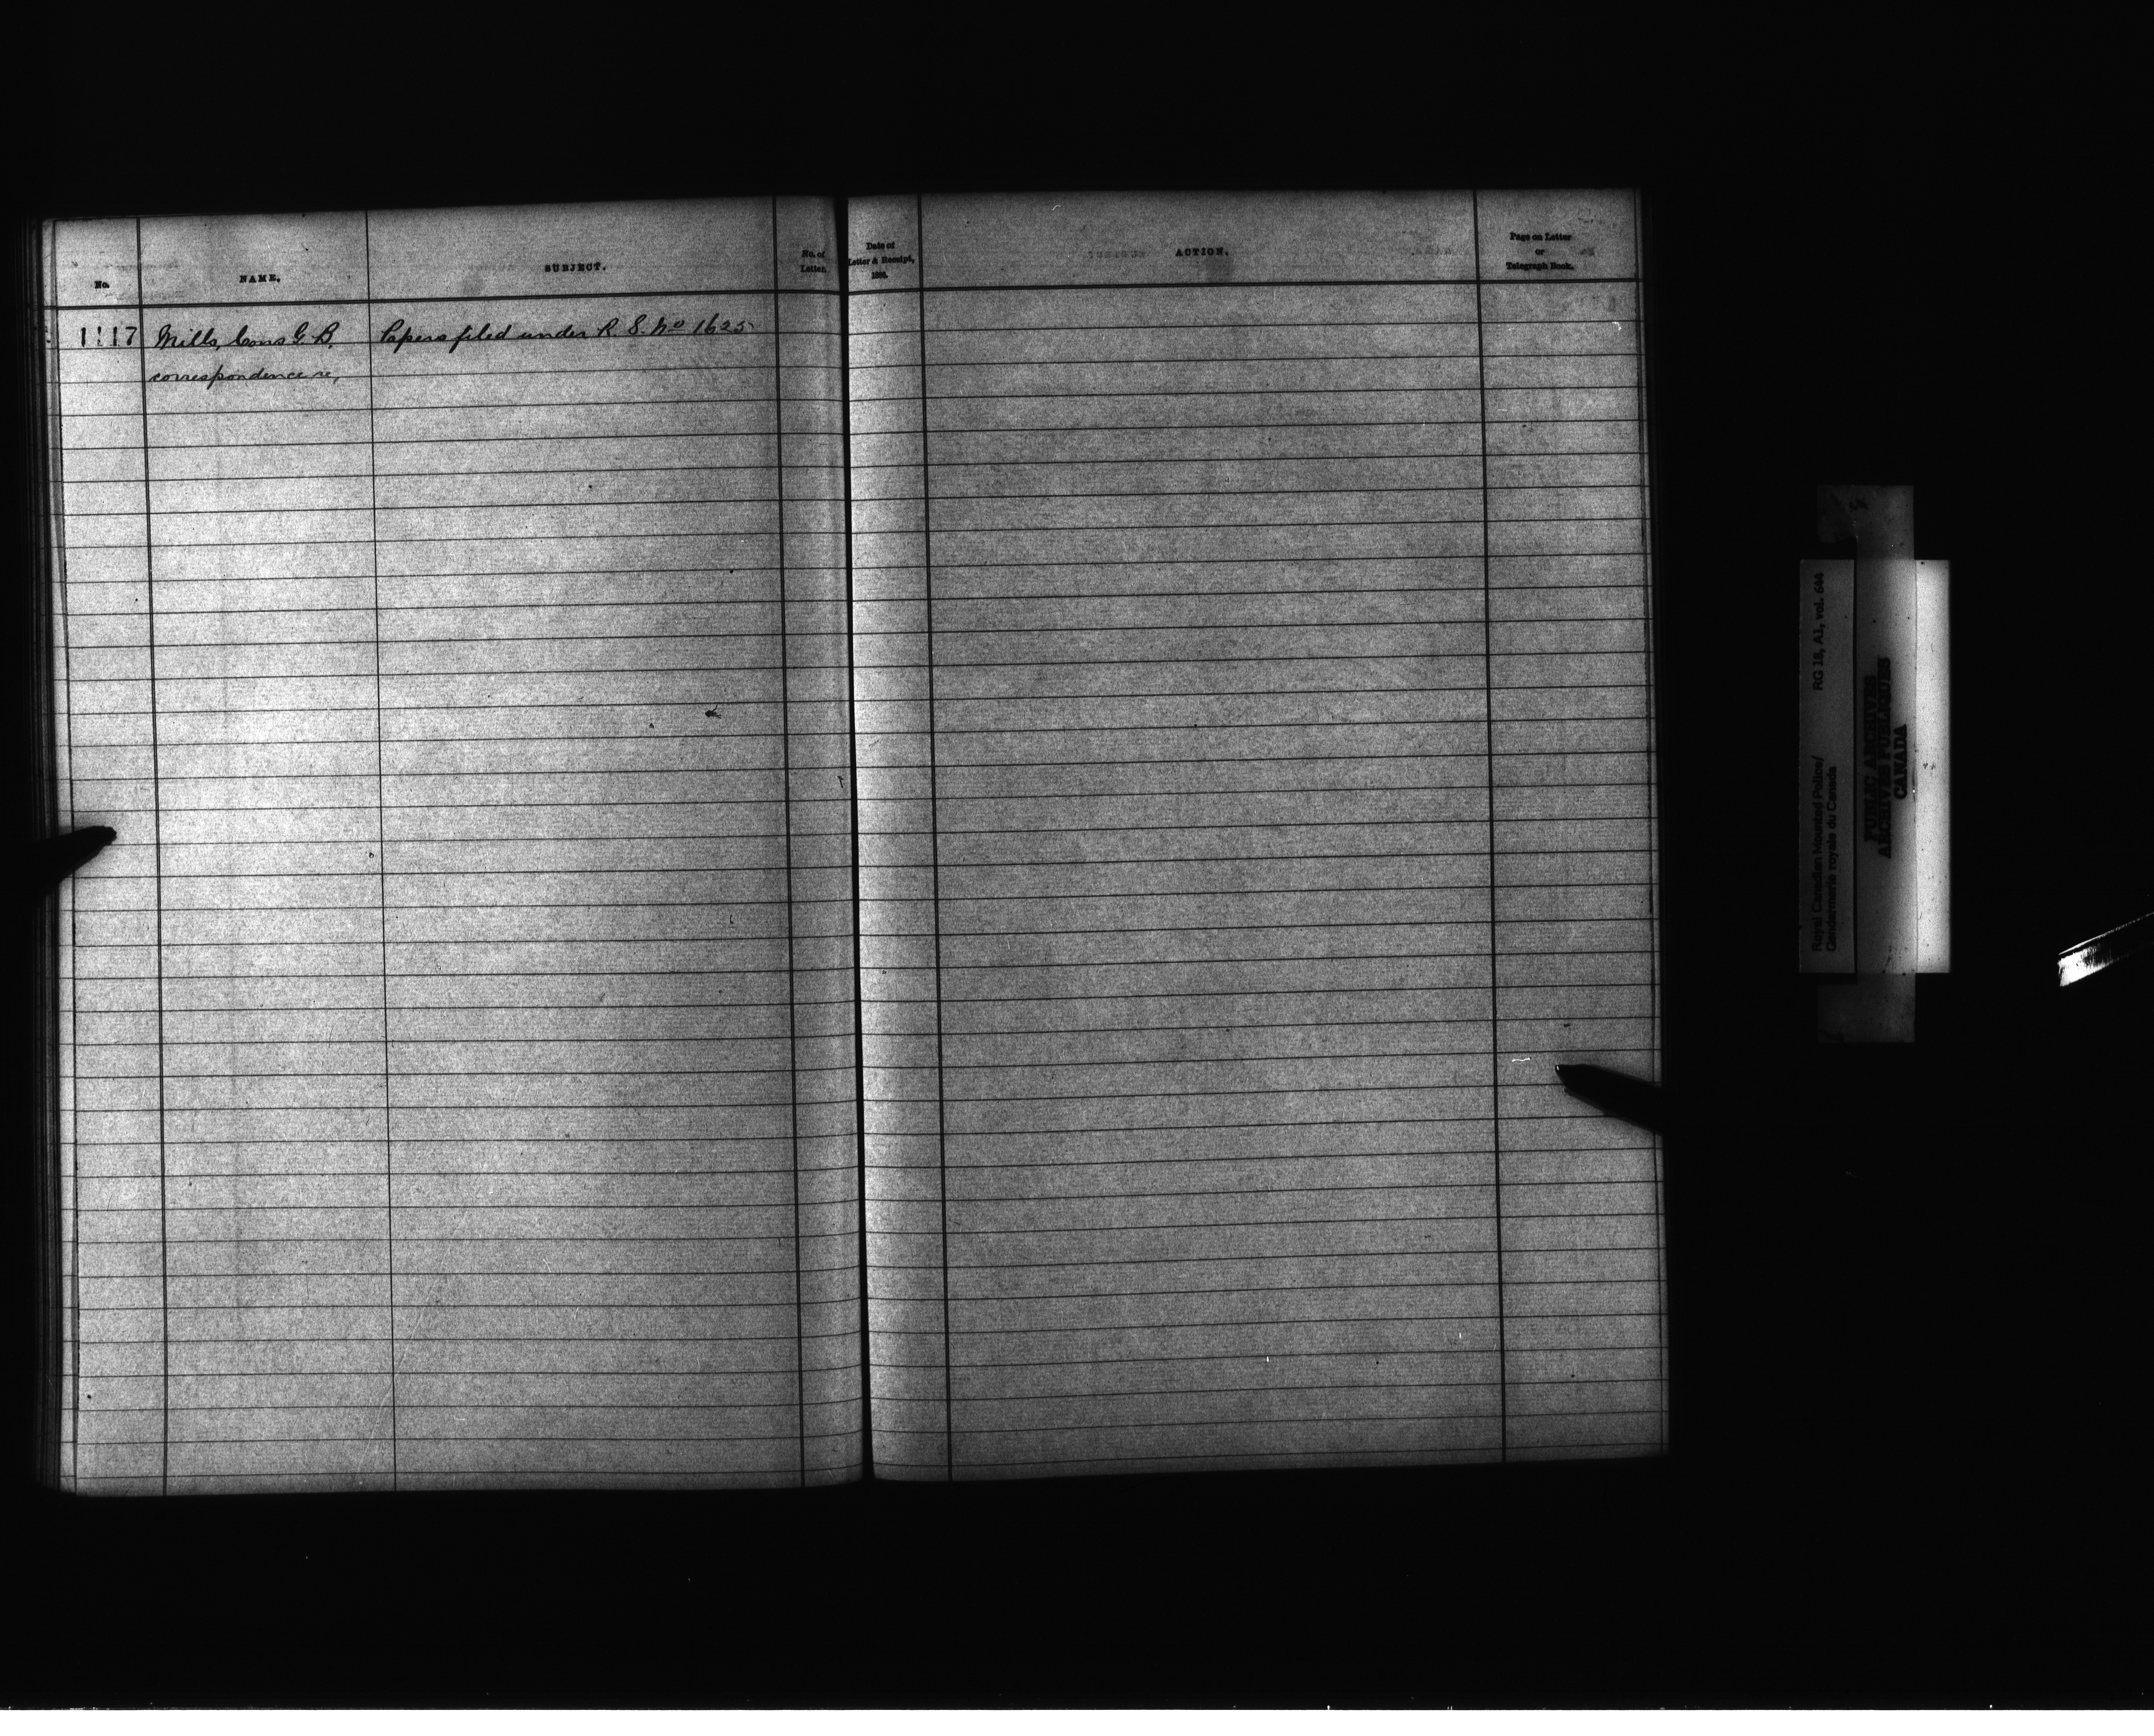 No.
NAME.
SUBJECT.
No. of
Letter.
Date of
Letter & Receipt,
188 .
ACTION.
Page on Letter
or
Telegraph Book.
1117 Mills, Cons G. B. Papers filed under R. S. No 1625
correspondence re,
Royal Canadian Mounted Police/ RG 18, A1, vol. 644
Gendarmerie royale du Canada
PUBLIC ARCHIVES
ARCHIVES PUBLIQUES
CANADA